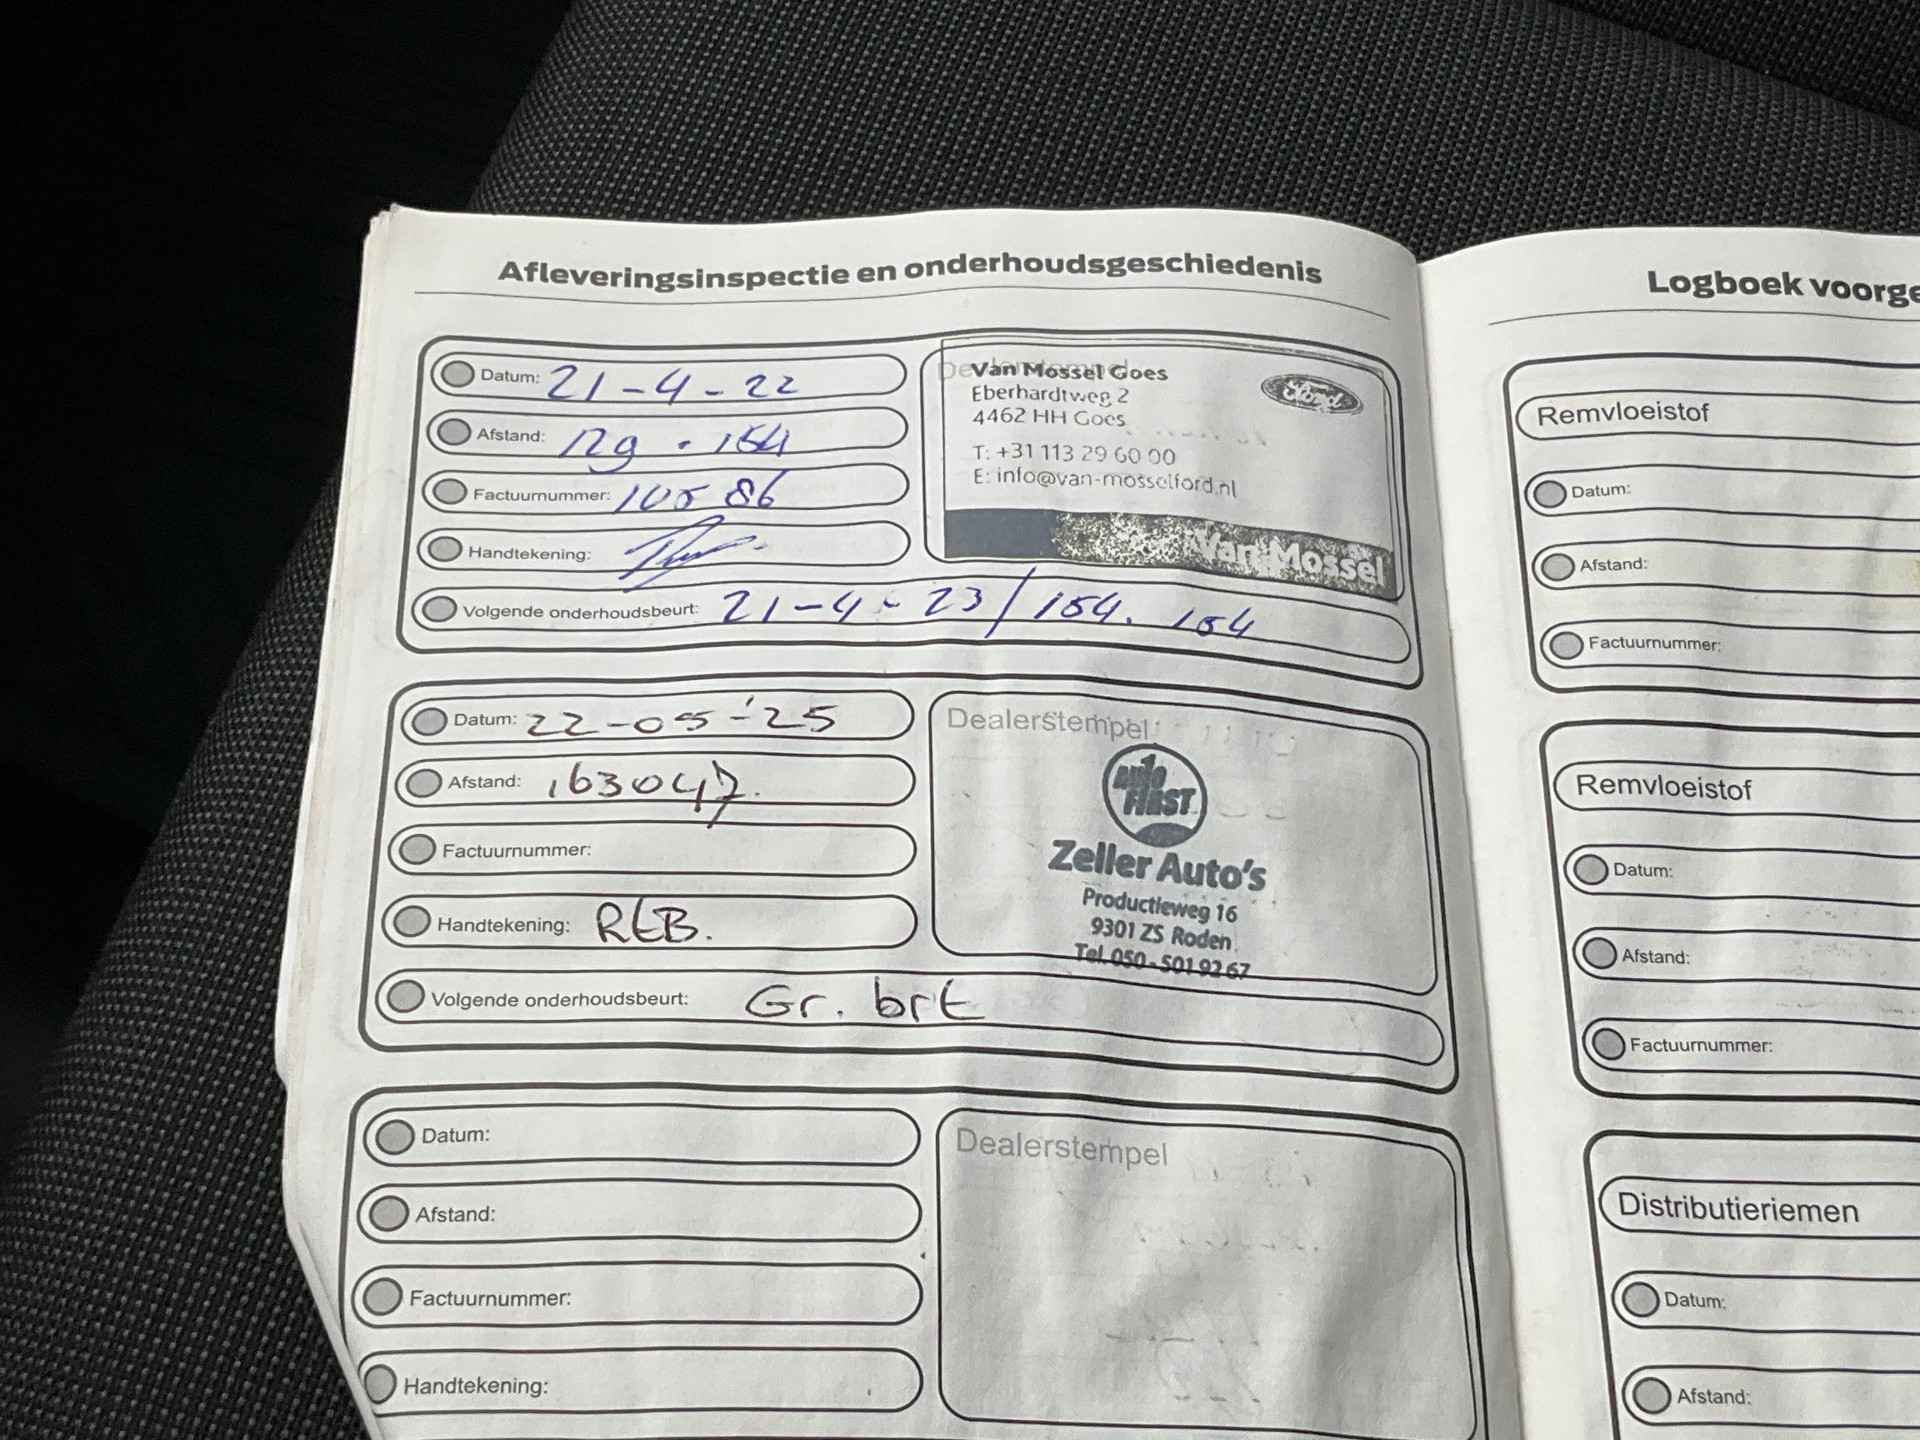 Afleveringsinspectie en onderhoudsgeschiedenis
Datum: 21-4-22
Afstand: 129.154
Factuurnummer: 10586
Handtekening:
Volgende onderhoudsbeurt: 21-4-23/154.154
Dealerstempel
Van Mossel Goes
Eberhardtweg 2
4462 HH Goes
T: +31 113 29 60 00
E: info@van-mosselford.nl
Ford
Van Mossel
Datum: 22-05-'25
Afstand: 163047.
Factuurnummer:
Handtekening: REB.
Volgende onderhoudsbeurt: Gr. brt
Dealerstempel
Auto
FIRST
Zeller Auto's
Productieweg 16
9301 ZS Roden
Tel. 050-501 92 67
Datum:
Afstand:
Factuurnummer:
Handtekening:
Dealerstempel
Logboek voorge
Remvloeistof
Datum:
Afstand:
Factuurnummer:
Remvloeistof
Datum:
Afstand:
Factuurnummer:
Distributieriemen
Datum:
Afstand: